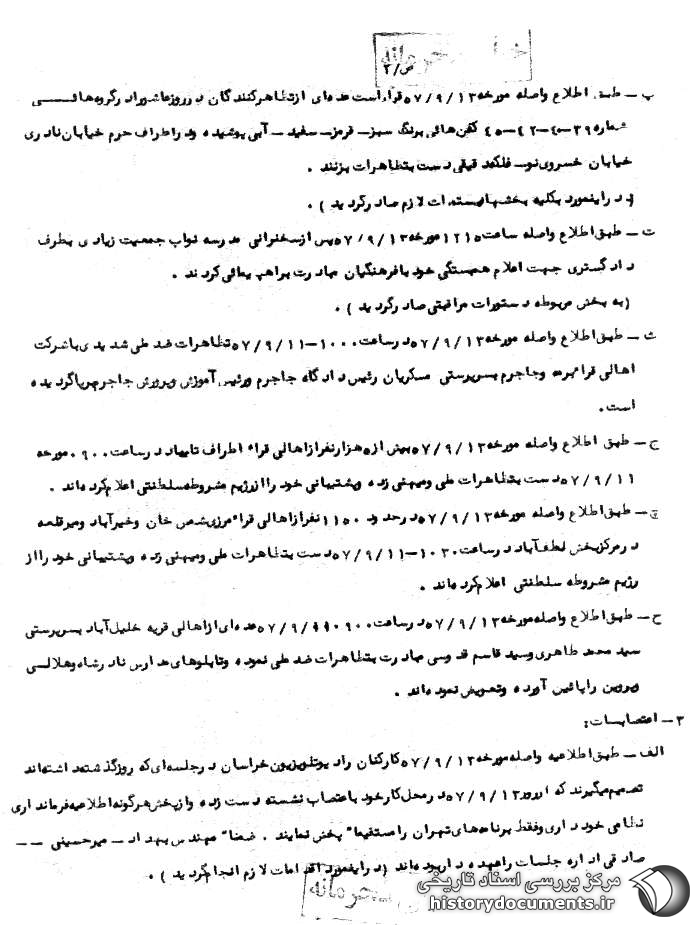 ص/۳
پ – طبق اطلاع واصله مورخه ۵۷/۹/۱۳ قرار است عده‌ای از تظاهرکنندگان در روز عاشورا در گروه‌هائی
شماره ۳۹–۴۰–۴۲–۴۵ کفن‌هائی برنگ سبز – قرمز – سفید – آبی پوشیده و در اطراف حرم خیابان نادری
خیابان خسروی نو – فلکه دقیقی دست بتظاهرات بزنند .
( در اینمورد بکلیه بخشها دستورات لازم صادر گردید ) .
ت – طبق اطلاع واصله ساعت ۱۲۱۵ مورخه ۵۷/۹/۱۳ پس از سخنرانی مدرسه نواب جمعیت زیادی بطرف
دادگستری جهت اعلام همبستگی خود با فرهنگیان مبادرت براهپیمائی کردند .
( به بخش مربوطه دستورات مراقبتی صادر گردید ) .
ث – طبق اطلاع واصله مورخه ۵۷/۹/۱۳ در ساعت ۱۰۰۰–۵۷/۹/۱۱ تظاهرات ضد ملی شدیدی با شرکت
اهالی قراء و جاجرم بسرپرستی عسکریان رئیس دادگاه جاجرم و رئیس آموزش و پرورش جاجرم برپا گردیده
است .
ج – طبق اطلاع واصله مورخه ۵۷/۹/۱۳ بیش از ۵ هزار نفر از اهالی قراء اطراف تایباد در ساعت ۰۹۰۰ مورخه
۵۷/۹/۱۱ دست بتظاهرات ملی و میهنی زده و پشتیبانی خود را از رژیم مشروطه سلطنتی اعلام کرده‌اند .
چ – طبق اطلاع واصله مورخه ۵۷/۹/۱۳ در حدود ۱۱۵۰ نفر از اهالی قراء مرزی شمس خان و خیرآباد و میرقلعه
در مرکز بخش لطف‌آباد در ساعت ۱۰۳۰–۵۷/۹/۱۱ دست بتظاهرات ملی و میهنی زده و پشتیبانی خود را از
رژیم مشروطه سلطنتی اعلام کرده‌اند .
ح – طبق اطلاع واصله مورخه ۵۷/۹/۱۳ در ساعت ۰۹۰۰ ۵۷/۹/۱۱ عده‌ای از اهالی قریه خلیل‌آباد بسرپرستی
سید محمد طاهری و سید قاسم قدوسی مبادرت بتظاهرات ضد ملی نموده و تابلوهای مدارس نادرشاه و هلالی
و پروین را پائین آورده و تعویض نموده‌اند .
۳ – اعتصابات :
الف – طبق اطلاعیه واصله مورخه ۵۷/۹/۱۳ کارکنان رادیو تلویزیون خراسان در جلسه‌ای که روز گذشته داشته‌اند
تصمیم میگیرند که از روز ۵۷/۹/۱۳ در محل کار خود باعتصاب نشسته دست زده و از پخش هر گونه اطلاعیه فرمانداری
نظامی خودداری و فقط برنامه‌های تهران را مستقیما" پخش نمایند . ضمنا" مهندس بهداد – میرحسینی ––
صادقی اداره جلسات را عهده‌دار بوده‌اند ( در اینمورد اقدامات لازم انجام گردید ) .
محرمانه
مرکز بررسی اسناد تاریخی
historydocuments.ir